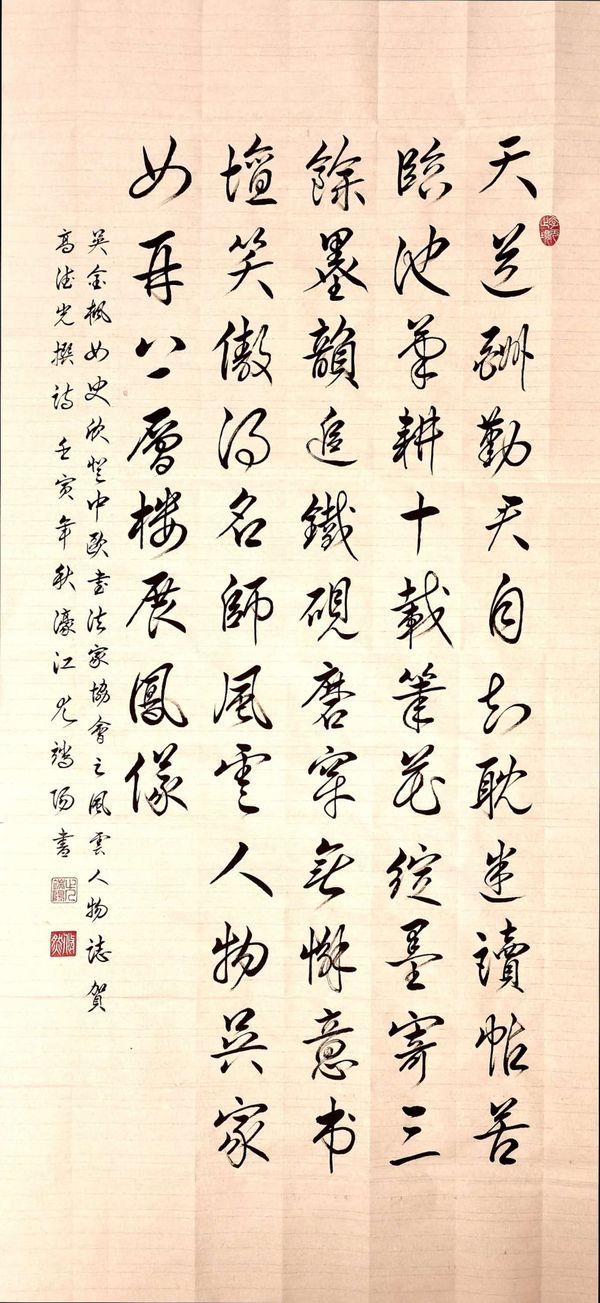 天道酬勤天自知耽迷讀帖苦
臨池筆耕十載筆花綻墨寄三
餘墨韻追鐵硯磨穿無懈意书
壇笑傲得名師風雲人物吳家
女再上一層樓展鳳儀
吳金楓女史欣登中歐書法家協會之風雲人物誌賀
高德光撰詩 壬寅年秋濠江 陽書